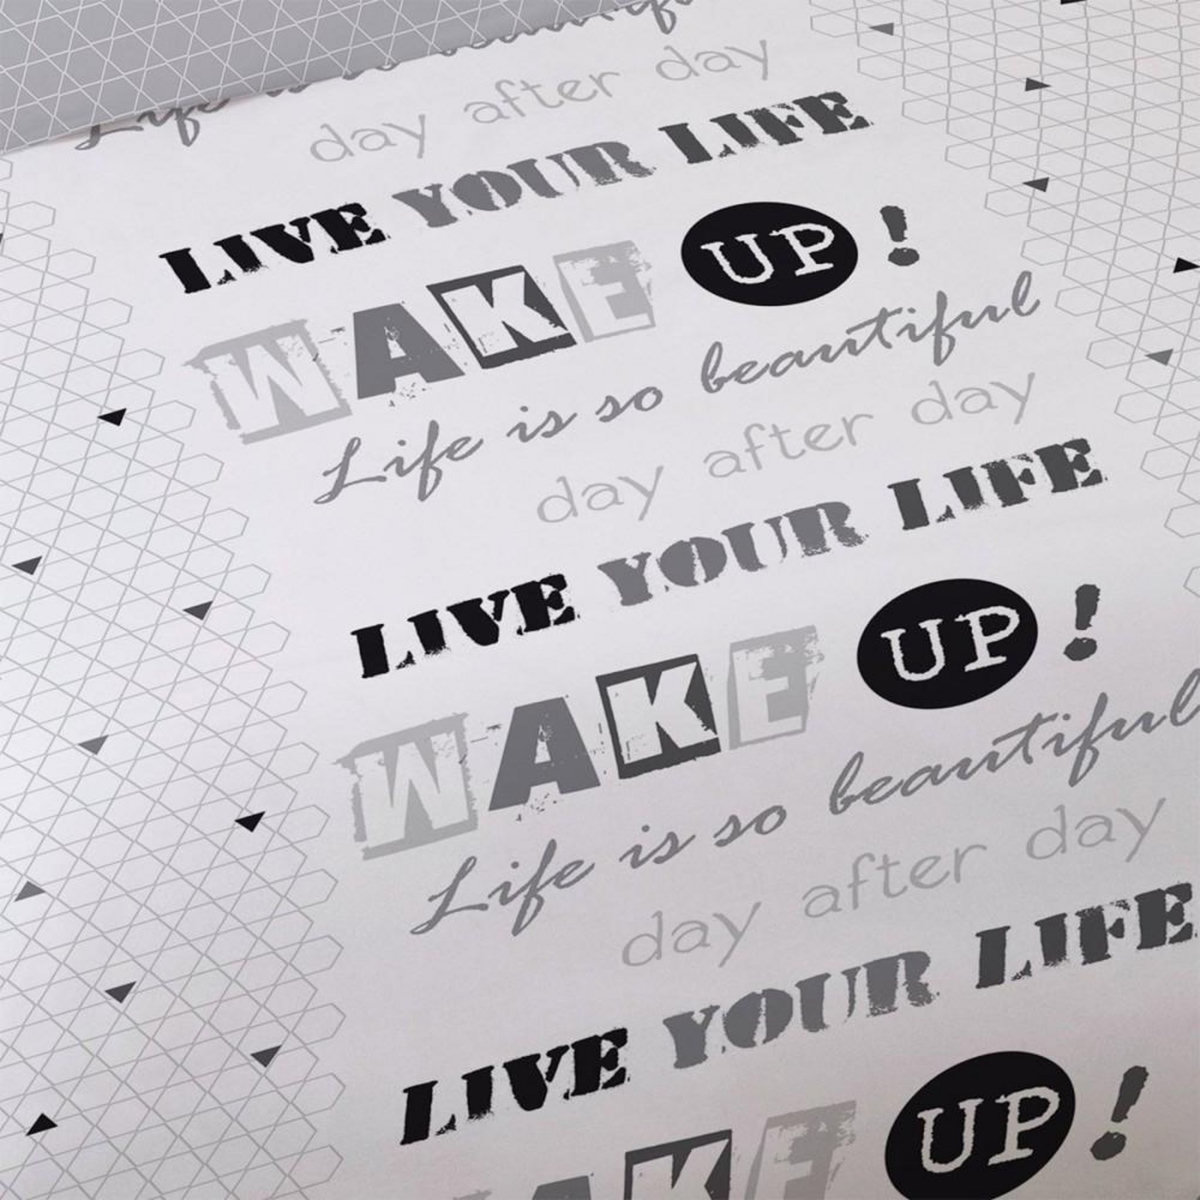 Life is so beautiful
day after day
LIVE YOUR LIFE
WAKE UP!
Life is so beautiful
day after day
LIVE YOUR LIFE
WAKE UP!
Life is so beautiful
day after day
LIVE YOUR LIFE
WAKE UP!